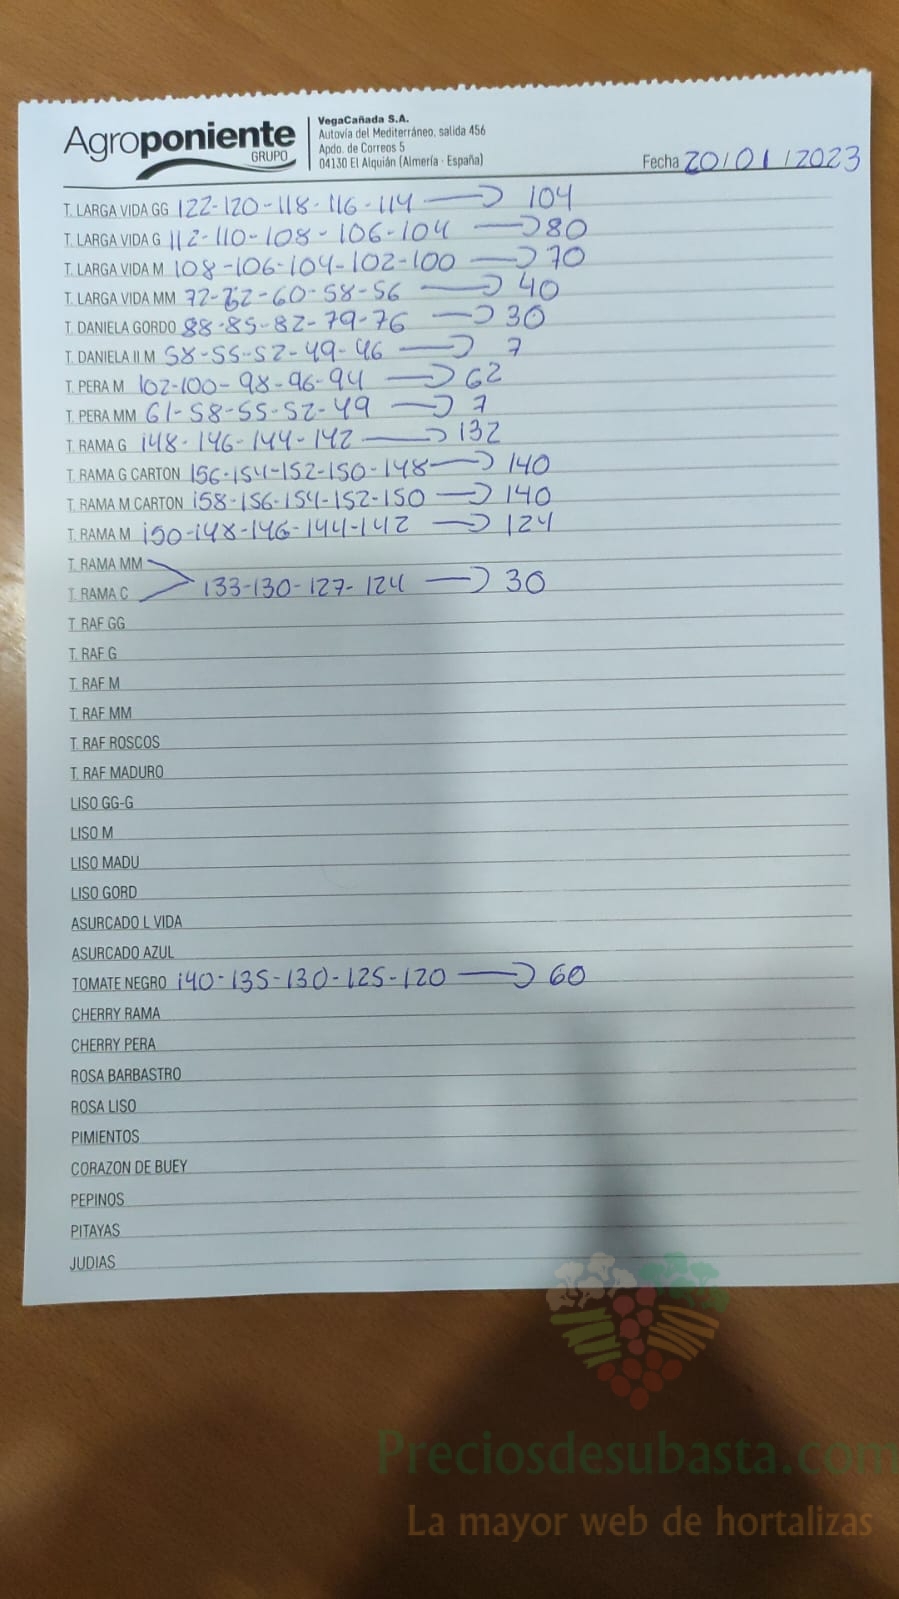 Agroponiente
GRUPO
VegaCañada S.A.
Autovía del Mediterráneo, salida 456
Apdo. de Correos 5
04130 El Alquián (Almería - España)
Fecha 20/01/2023
T. LARGA VIDA GG 122-120-118-116-114 → 104
T. LARGA VIDA G 112-110-108-106-104 → 80
T. LARGA VIDA M 108-106-104-102-100 → 70
T. LARGA VIDA MM 72-62-60-58-56 → 40
T. DANIELA GORDO 88-85-82-79-76 → 30
T. DANIELA II M 58-55-52-49-46 → 7
T. PERA M 102-100-98-96-94 → 62
T. PERA MM 61-58-55-52-49 → 7
T. RAMA G 148-146-144-142 → 132
T. RAMA G CARTON 156-154-152-150-148 → 140
T. RAMA M CARTON 158-156-154-152-150 → 140
T. RAMA M 150-148-146-144-142 → 124
T. RAMA MM
T. RAMA C 133-130-127-124 → 30
T. RAF GG
T. RAF G
T. RAF M
T. RAF MM
T. RAF ROSCOS
T. RAF MADURO
LISO GG-G
LISO M
LISO MADU
LISO GORD
ASURCADO L VIDA
ASURCADO AZUL
TOMATE NEGRO 140-135-130-125-120 → 60
CHERRY RAMA
CHERRY PERA
ROSA BARBASTRO
ROSA LISO
PIMIENTOS
CORAZON DE BUEY
PEPINOS
PITAYAS
JUDIAS
Preciosdesubasta.com
La mayor web de hortalizas